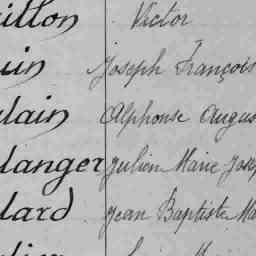 illon Victor
uin Joseph François
lain Alphonse Augus
langer Julien Marie Jose
lard Jean Baptiste Ma